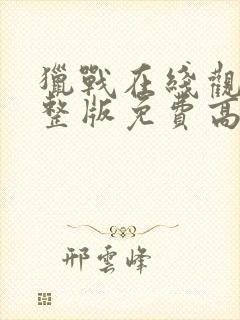 獵戰在綫觀
整版免費高
邢雲峰